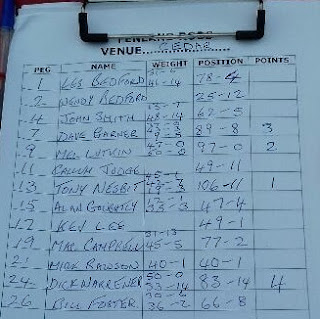 VENUE CEDAR
PEG NAME WEIGHT POSITION POINTS
1 LES BEDFORD 41-14 78-4
2 WENDY BEDFORD 25-12
4 JOHN SMITH 48-14 62-5
7 DAVE GARNER 89-8 3
9 MEL LUTKIN 97-0 2
11 CALLUM JUDGE 49-11
13 TONY NESBIT 106-11 1
15 ALAN GOLIGHTLY 47-4
17 KEV LEE 49-1
19 MAC CAMPBELL 45-5 77-2
21 MICK RAWSON 40-1 40-1
24 DICK WARRENER 50-0 33-14 83-14 4
26 BILL FOSTER 36-2 66-8